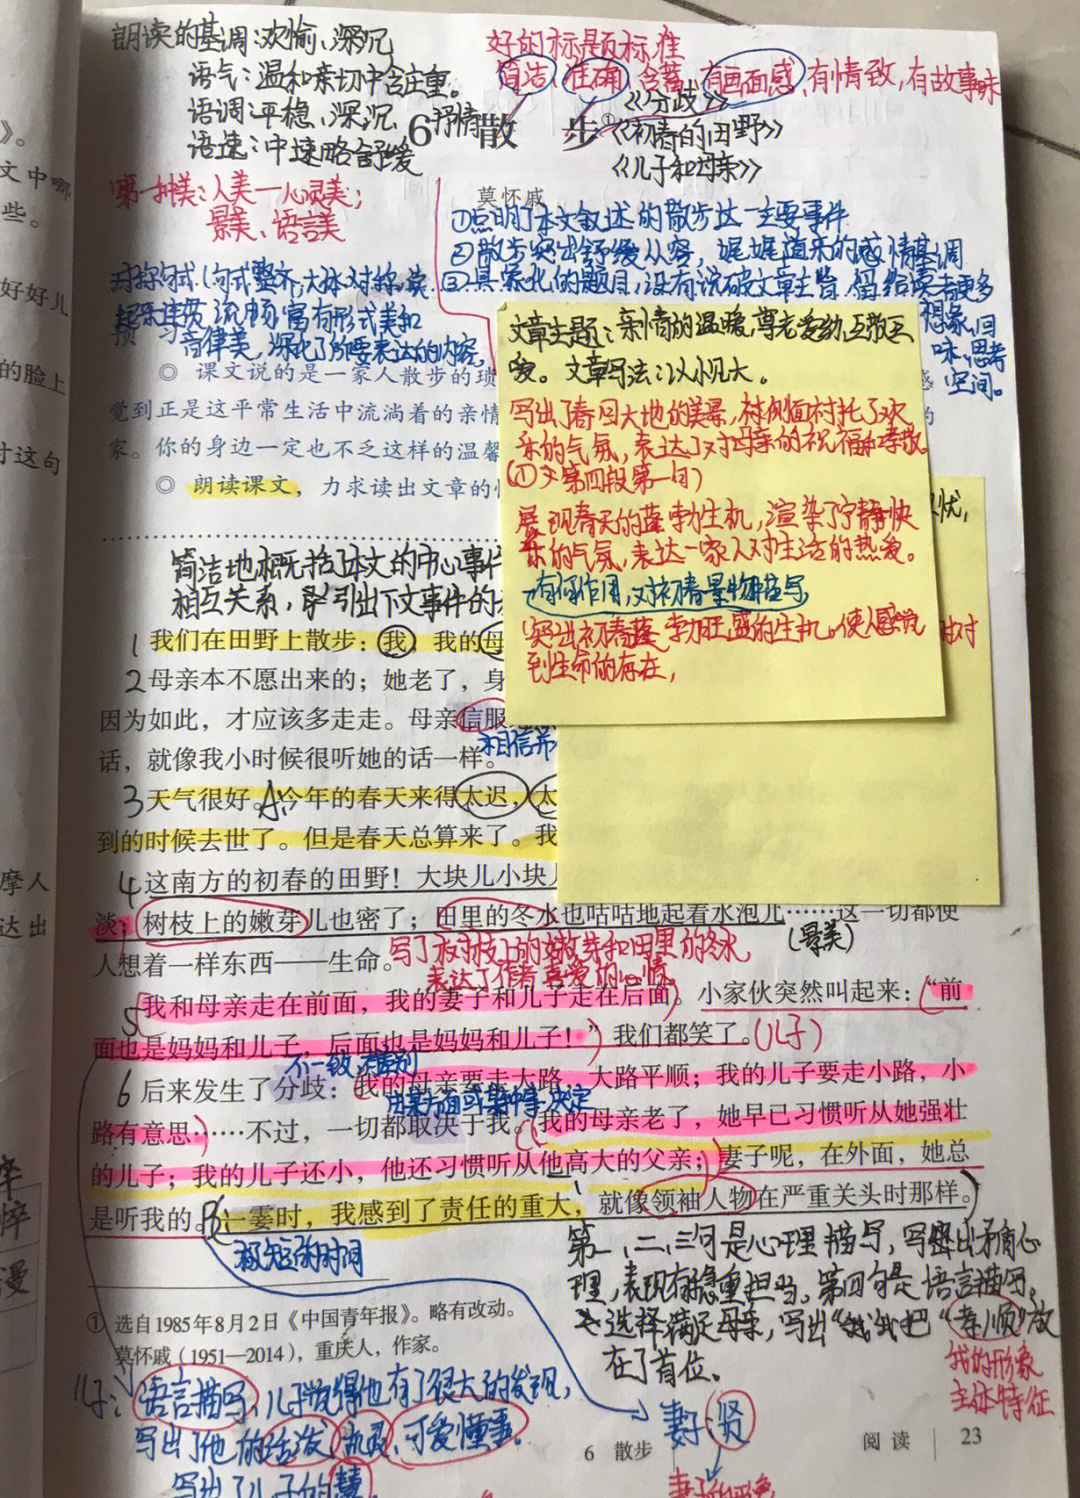 朗读的基调:欢愉、深沉
语气:温和亲切中含庄重。
语调:平稳、深沉、抒情
语速:中速略舒缓
好的标题标准
简洁、准确、含蓄、有画面感、有情致,有故事味
《分歧》
《初春的田野》
《儿子和母亲》
6 散 步①
莫怀戚
第一种美:人美—心灵美;
景美、语言美
①点明了本文叙述的散步这一主要事件
②散步突出舒缓从容,娓娓道来的感情基调
③具象化的题目,没有说破文章主旨,留给读者更多
想象,回
味,思考
空间。
对称句式(句式整齐,大体对称,读
起来连贯流畅,富有形式美和
音律美,深化了所要表达的内容,
预 习
◎ 课文说的是一家人散步的琐
觉到正是这平常生活中流淌着的亲情
家。你的身边一定也不乏这样的温馨
◎ 朗读课文,力求读出文章的
文章主题:亲情的温暖,尊老爱幼,互敬互
爱。文章写法:以小见大。
写出了春回大地的美景,衬侧面衬托了欢
乐的气氛,表达了对母亲的祝福和孝敬
(①文第四段第一句)
展现春天的蓬勃生机,渲染了宁静快
乐的气氛,表达一家人对生活的热爱。
有何作用,对初春景物描写
(突出初春蓬勃旺盛的生机。使人感觉
到生命的存在,
简洁地概括了本文的中心事件
相互关系,牵引出下文事件的
1 我们在田野上散步:我,我的母
2 母亲本不愿出来的;她老了,身
因为如此,才应该多走走。母亲信服
相信并
话,就像我小时候很听她的话一样。
3 天气很好。A今年的春天来得太迟,太
到的时候去世了。但是春天总算来了。我
4 这南方的初春的田野!大块儿小块
淡;树枝上的嫩芽儿也密了;田里的冬水也咕咕地起着水泡儿……这一切都使
(景美)
人想着一样东西——生命。
写了树枝上的嫩芽和田里的冬水,
表达了作者喜爱的心情。
5 我和母亲走在前面,我的妻子和儿子走在后面。小家伙突然叫起来:“前
面也是妈妈和儿子,后面也是妈妈和儿子!”我们都笑了。(儿子)
不一致,差别
6 后来发生了分歧:我的母亲要走大路,大路平顺;我的儿子要走小路,小
由某方面或某种事决定
路有意思……不过,一切都取决于我。我的母亲老了,她早已习惯听从她强壮
的儿子;我的儿子还小,他还习惯听从他高大的父亲;妻子呢,在外面,她总
是听我的。B一霎时,我感到了责任的重大,就像领袖人物在严重关头时那样。
极短的时间
第一、二、三句是心理描写,写出矛盾心
理,表现有稳重担当。第四句是语言描写。
选择满足母亲,写出“我”把“孝顺”放
在了首位。
我的形象
主体特征
① 选自1985年8月2日《中国青年报》。略有改动。
莫怀戚(1951—2014),重庆人,作家。
儿子:语言描写,儿子觉得他有了很大的发现,
写出了他的活泼、机灵、可爱懂事。
妻子:贤
6 散步
阅读 | 23